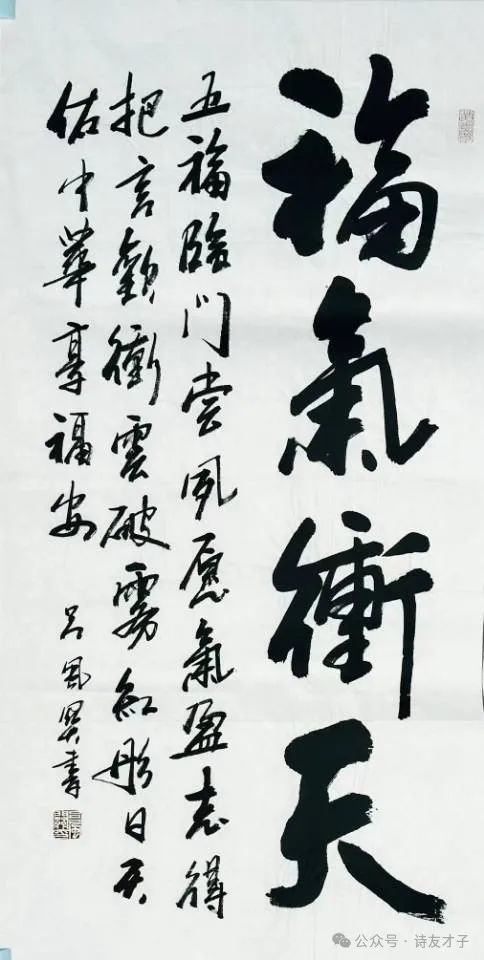 福氣衝天
五福臨門尝夙愿氣盈志得
把言歡衝雲破霧紅彤日天
佑中華享福安
吕書
公众号 · 诗友才子